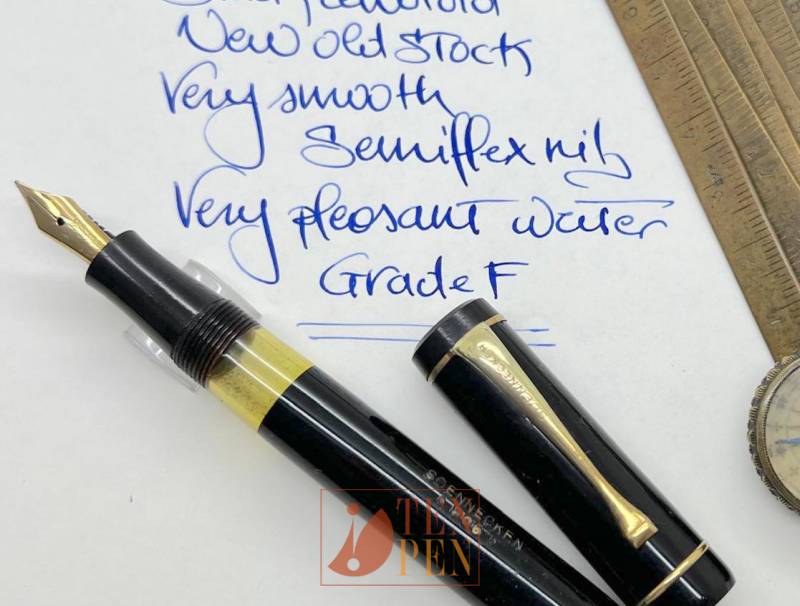 New old Stock
Very smooth
Semiflex nib
Very pleasant writer
Grade F
SOENNECKEN
TEN
PEN